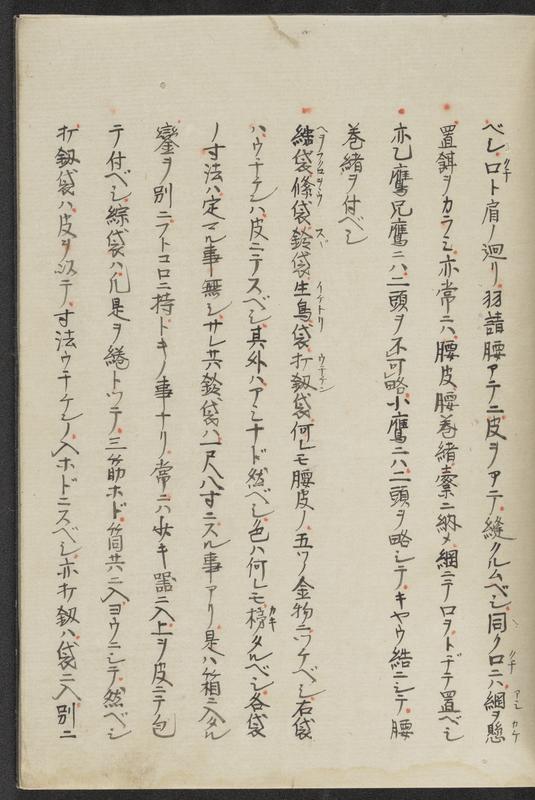 ベシロト肩ノ廻リ羽詰腰アテニ皮ヲアテ縫クルムベシ同クロニハ綱ヲ懸
置餌ヲカラミ亦常ニハ腰皮腰巻緒素ニ納メ綱ニテロヲトヂテ置ベシ
亦乙鷹兄鷹ニハ二頭ヲ不可略小鷹ニハ二頭ヲ略シテキヤウ結ニシテ腰
巻緒ヲ付ベシ
綜袋條袋鈴袋生鳥袋打釼袋何レモ腰皮ノ五ツノ金物ニツケベシ右袋
ハウチケシハ皮ニテスベシ其外ハアミナド然ベシ色ハ何レモ榜タルベシ各袋
ノ寸法ハ定マル事無シサレ共鈴袋ハ一尺八寸ニスル事アリ是ハ箱ニ入タル
鑾ヲ別ニフトコロニ持トキノ事ナリ常ニハ少キ器ニ入上ヲ皮ニテ包
テ付ベシ綜袋ハ凡是ヲ綣トツテ三筋ホド筒共ニ入ヨウニシテ然ベシ
打釼袋ハ皮ヲ以テ寸法ウチケシノ入ホドニスベシ亦打釼ハ袋ニ入別ニ